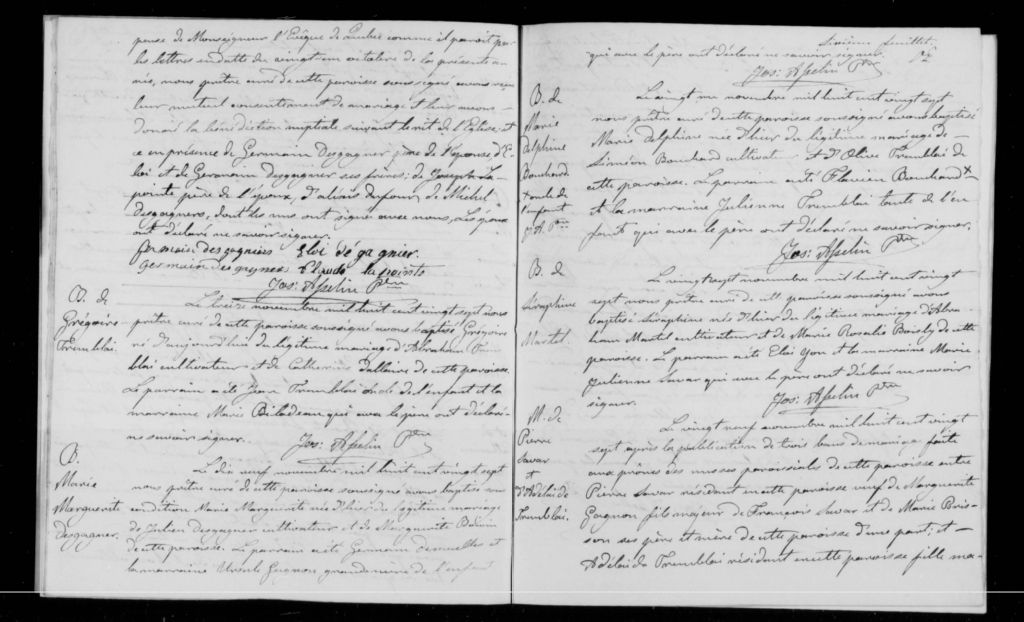 pense de Monseigneur l'Evêque de Quebec comme il paroit par
les lettres en datte du vingt un octobre de la présente an
née, nous prêtre curé de cette paroisse soussigné avons reçu
leur mutuel consentement de mariage et leur avons
donné la bénédiction nuptiale suivant le rit de l'Eglise; et
ce en présence de Germain Desgagner père de l'épouse, d'E-
loi et de Germain desgagner ses frères; de Joseph La-
pointe père de l'époux, d'alexis dufour, de Michel
Desgagners, dont les uns ont signé avec nous, Les époux
ont déclaré ne savoir signer.
germain desgagniers Eloi dégagnier
germain des gagnés Claude lapointe
Jos: Asselin Ptre
B. de
Grégoire
Tremblai.
Le treize novembre mil huit cent vingt sept nous
prêtre curé de cette paroisse soussigné avons baptisé Grégoire
né d'aujourd'hui du légitime mariage d'Abraham Trem
blai cultivateur et de Catherine Dallaire de cette paroisse.
Le parrain a été Jean Tremblai oncle de l'enfant et la
marraine Marie Bilodeau qui avec le père ont déclaré
ne savoir signer.
Jos: Asselin Ptre
B.
Marie
Marguerite
Desgagner.
Le dix neuf novembre mil huit cent vingt sept
nous prêtre curé de cette paroisse soussigné avons baptisé sous
condition Marie Marguerite née d'hier du légitime mariage
de Julien Desgagner cultivateur et de Marguerite
de cette paroisse. Le parrain a été Germain et
la marraine Ursule Gagnon grandemère de l'enfant
Sixième feuillet.
qui avec le père ont déclaré ne savoir signer.
Jos: Asselin Ptre
B. de
Marie
Delphine
Bouchard
+ oncle de
l'enfant
J. A. Ptre
Le vingt un novembre mil huit cent vingt sept
nous prêtre curé de cette paroisse soussigné avons baptisé
Marie Delphine née d'hier du légitime mariage de
Siméon Bouchard cultivateur et d'Olive Tremblai de
cette paroisse. Le parrain a été Flavien Bouchard +
et la marraine Julienne Tremblai tante de l'en
fant qui avec le père ont déclaré ne savoir signer.
Jos: Asselin Ptre
B. de
Séraphine
Martel.
Le vingt sept novembre mil huit cent vingt
sept nous prêtre curé de cette paroisse soussigné avons
baptisé Séraphine née d'hier du légitime mariage d'Abra-
ham Martel cultivateur et de Marie Rosalie Boily de cette
paroisse. Le parrain a été Eloi Yon et la marraine Marie
Julienne Savar qui avec le père ont déclaré ne savoir
signer.
Jos: Asselin Ptre
M. de
Pierre
Savar
et
d'Adelaide
Tremblai.
Le vingt neuf novembre mil huit cent vingt
sept, après la publication de trois bans de mariage faite
aux prônes des messes paroissiales de cette paroisse entre
Pierre Savar résident en cette paroisse veuf de Marguerite
Gagnon fils majeur de François Savar et de Marie Bris-
son ses père et mère de cette paroisse d'une part; et
Adelaide Tremblai résident en cette paroisse fille ma-